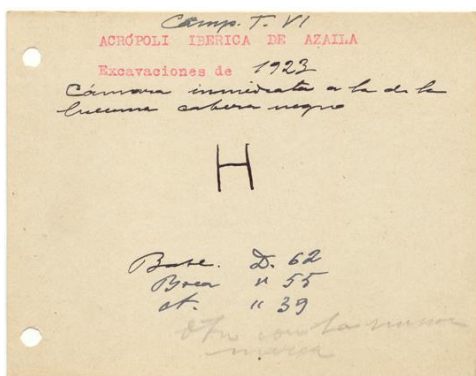 Camp. T. VI
ACRÓPOLI IBERICA DE AZAILA
Excavaciones de 1923
Cámara inmediata a la de la
lucerna cabeza negro
H
Base. D. 62
Boca " 55
A. " 39
Otro con la misma
marca